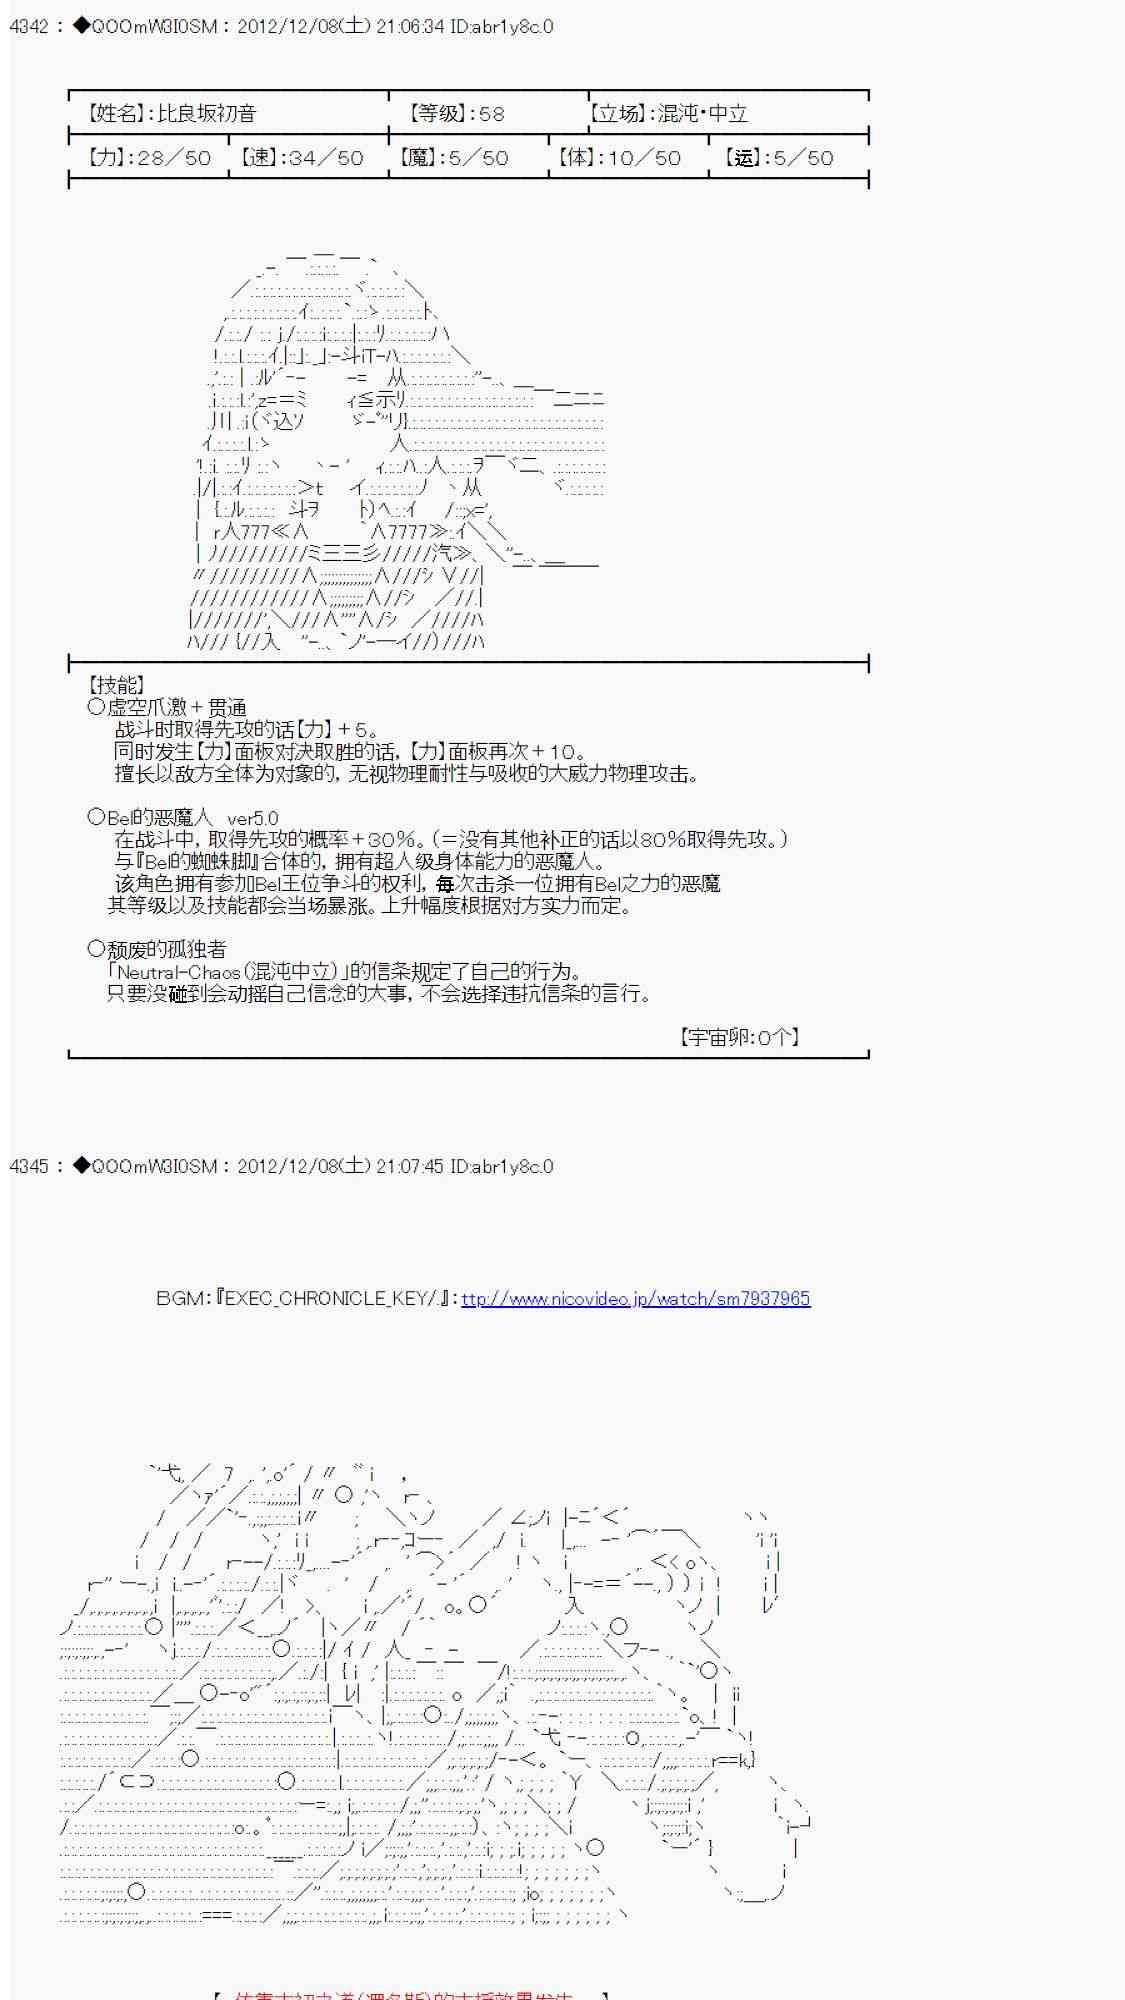 4342 : ◆QOOmW3I0SM : 2012/12/08(土) 21:06:34 ID:abr1y8c.0
【姓名】:比良坂初音 【等级】:58 【立场】:混沌・中立
【力】:28/50 【速】:34/50 【魔】:5/50 【体】:10/50 【运】:5/50
【技能】
○虚空爪激+贯通
战斗时取得先攻的话【力】+5。
同时发生【力】面板对决取胜的话,【力】面板再次+10。
擅长以敌方全体为对象的,无视物理耐性与吸收的大威力物理攻击。
○Bel的恶魔人 ver5.0
在战斗中,取得先攻的概率+30%。(=没有其他补正的话以80%取得先攻。)
与『Bel的蜘蛛脚』合体的,拥有超人级身体能力的恶魔人。
该角色拥有参加Bel王位争斗的权利,每次击杀一位拥有Bel之力的恶魔
其等级以及技能都会当场暴涨。上升幅度根据对方实力而定。
○颓废的孤独者
「Neutral-Chaos(混沌中立)」的信条规定了自己的行为。
只要没碰到会动摇自己信念的大事,不会选择违抗信条的言行。
【宇宙卵:0个】
4345 : ◆QOOmW3I0SM : 2012/12/08(土) 21:07:45 ID:abr1y8c.0
BGM:『EXEC_CHRONICLE_KEY/.』:ttp://www.nicovideo.jp/watch/sm7937965